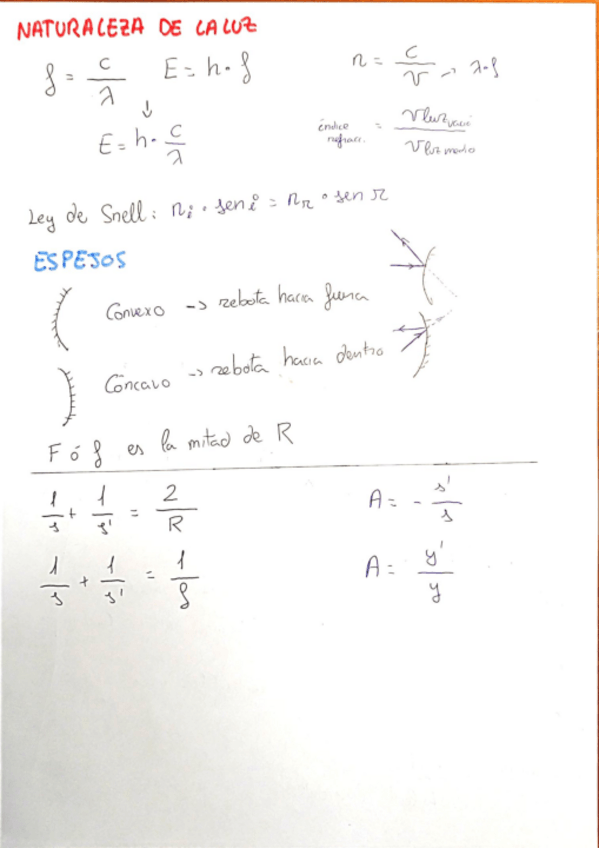 NATURALEZA DE LA LUZ
f = c/λ   E = h · f   n = c/v → λ·f
↓
E = h · c/λ   índice refracc. = v luz vací / v luz medio
Ley de Snell: nᵢ · sen i = nᵣ · sen r
ESPEJOS
Convexo -> rebota hacia fuera
Cóncavo -> rebota hacia dentro
F ó f es la mitad de R
1/s + 1/s' = 2/R   A = - s'/s
1/s + 1/s' = 1/f   A = y'/y